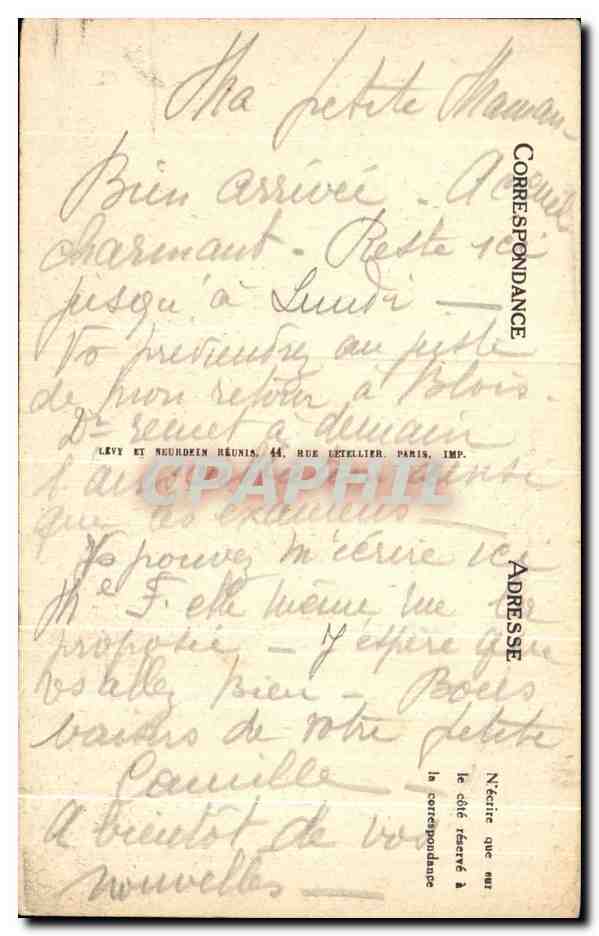 Ma petite Maman
Bien arrivée - Accueil
charmant - Reste ici
jusqu'à Lundi —
Vs préviendrez au juste
de mon retour à Blois.
Dr remet à demain
LÉVY ET NEURDEIN RÉUNIS, 44, RUE LETELLIER, PARIS, IMP.
CPAPHIL
l'auscultation ainsi
que les examens —
Vs pouvez m'écrire ici
Me F. elle même me l'a
proposé - J'espère que
vs allez bien - Bons
baisers de votre petite
Camille -
A bientôt de vos
nouvelles —
CORRESPONDANCE
ADRESSE
N'écrire que sur
le côté réservé à
la correspondance